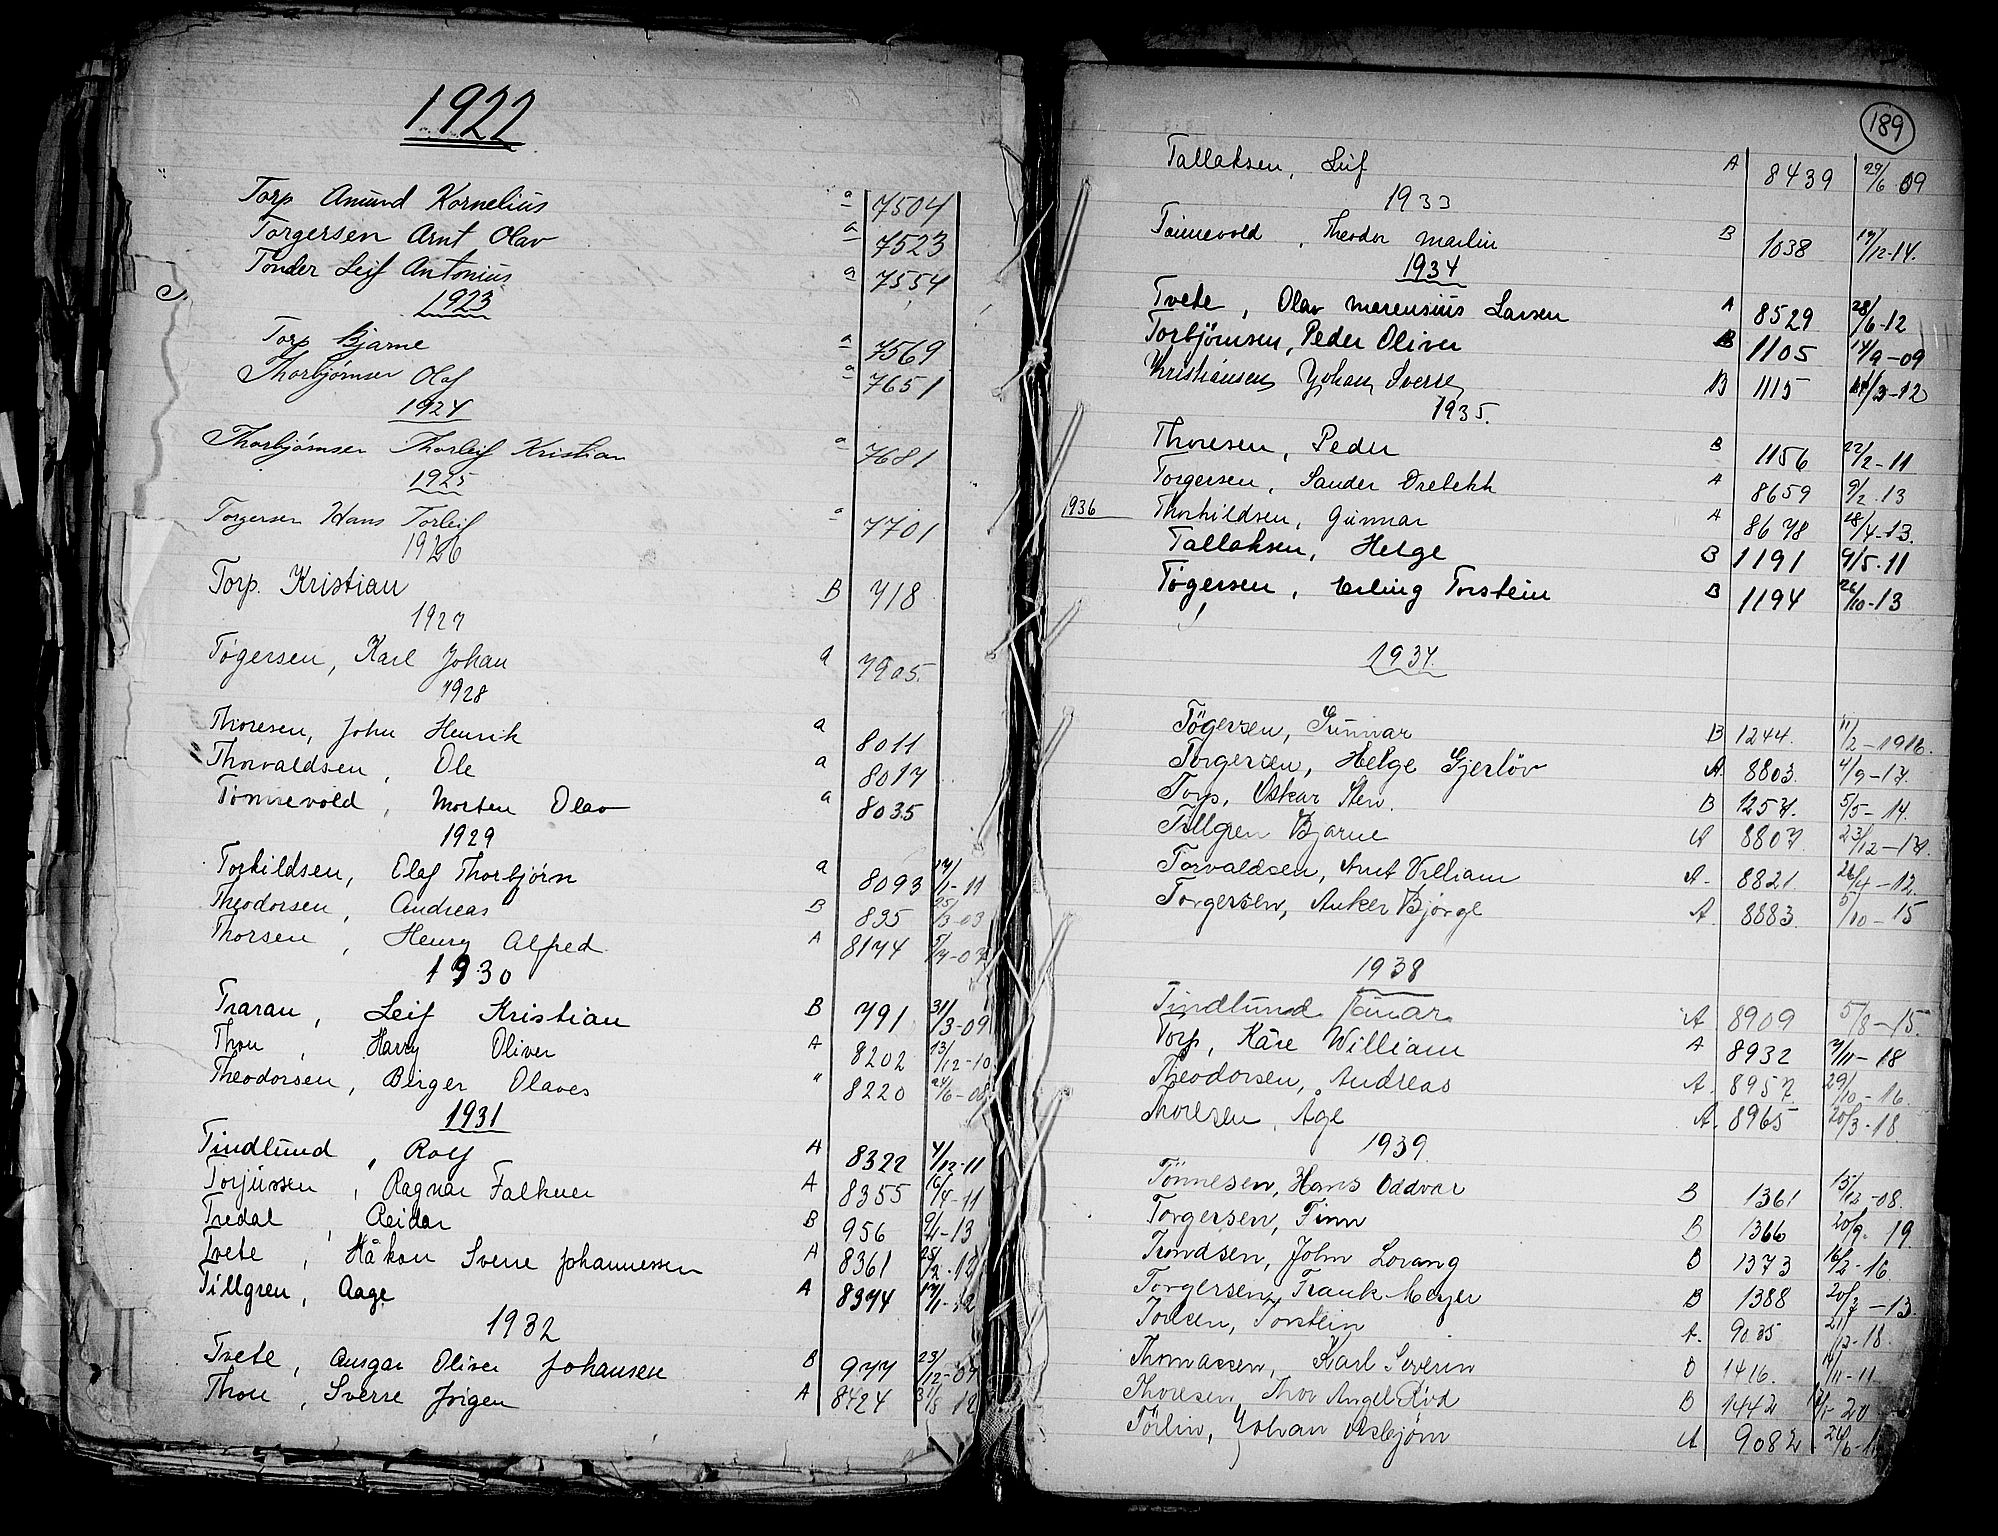 1922
Torp Amund Kornelius a 7504
Torgersen Arnt Olav a 7523
Tonder Leif Antonius a 7554
1923
Torp Bjarne a 7569
Thorbjørnsen Olaf a 7651
1924
Thorbjørnsen Thorleif Kristian a 7681
1925
Torgersen Hans Torleif a 7701
1926
Torp. Kristian B 718
1927
Tøgersen, Karl Johan a 7905.
1928
Thoresen, John Henrik a 8011
Thorvaldsen, Ole a 8017
Tønnevold, Morten Olav a 8035
1929
Torkildsen, Olaf Thorbjørn a 8093 14/1-11
Theodorsen, Andreas B 835 25/3-03
Thorsen, Henry Alfred. A 8174
1930
Traran, Leif Kristian B 791 31/3-09
Thou, Harry Oliver A 8202 13/12-10
Theodorsen, Birger Olaves " 8220 24/6-08
1931
Tindlund, Rolf A 8322 4/12-11
Torjussen, Ragnar Falkner A 8355 16/4-11
Tredal, Reidar B 956 9/4-13
Tvete, Håkon Sverre Johannessen A 8361 25/2-12
Tillgren, Aage A 8374 17/1-12
1932
Tvete, Ansgar Oliver Johansen B 977 23/12-07
Thou, Sverre Jørgen A 8424 31/8 12
189
Tallaksen, Leif A 8439 29/6 09
1933
Tønnevold, Theodor Martin B 1038 17/12-14.
1934
Tvete, Olav Marensius Larsen A 8529 28/6-12
Torbjørnsen, Peder Oliver B 1105 14/9-09
Kristiansen, Johan, Sverre, B 1115 /3-12
1935.
Thoresen, Peder B 1156 22/2-11
Torgersen, Sander Drebekk A 8659 9/2-13
1936 Thorkildsen, Gunnar A 8678 18/4-13.
Tallaksen, Helge B 1191 9/5-11
Tøgersen, Erling Torstein B 1194 26/10-13
1937.
Tøgersen, Gunnar B 1244. 11/2-1916.
Torgersen, Helge Gjerløv A. 8803. 4/9-17.
Torp, Oskar Sten. B 1257. 5/5-14.
Tillgren Bjarne A 8807. 23/12-17.
Torvaldsen, Arnt Villiam A. 8821. 26/4-12.
Torgersen, Anker Bjørge A. 8883. 5/10-15
1938
Tindlund Gunnar A 8909 5/8-15.
Torp, Kåre William A 8932 7/11-18
Theodorsen, Andreas A. 8957. 29/10-16.
Thoresen, Åge A. 8965 20/3-18
1939.
Tønnesen, Hans Oddvar B 1361 15/12-08.
Torgersen, Finn B 1366 20/9-19.
Trondsen, John Lorang B 1373 16/2-16.
Torgersen, Frank Meyer B 1388 20/7-13.
Torstein A. 9035 21/12-18.
Thomassen, Karl Severin B 1416. 14/11-11
Thoresen, Thor Angel Rød B 1442
Tørlin, Johan Asbjørn A 9082